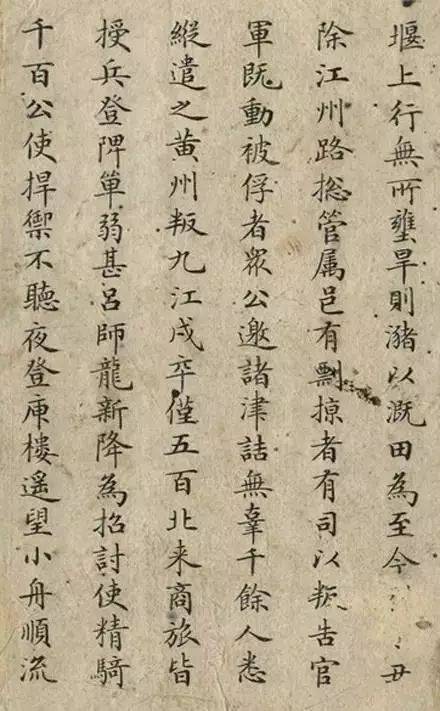 堰上行無所壅旱則瀦以溉田為至今毋
除江州路揔管属邑有剽掠者有司以叛告官
軍既動被俘者眾公邀諸津詰無辜千餘人悉
縱遣之黄州叛九江戍卒僅五百北来商旅皆
授兵登陴單弱甚呂師龍新降為招討使精騎
千百公使捍禦不聽夜登庾樓遥望小舟順流